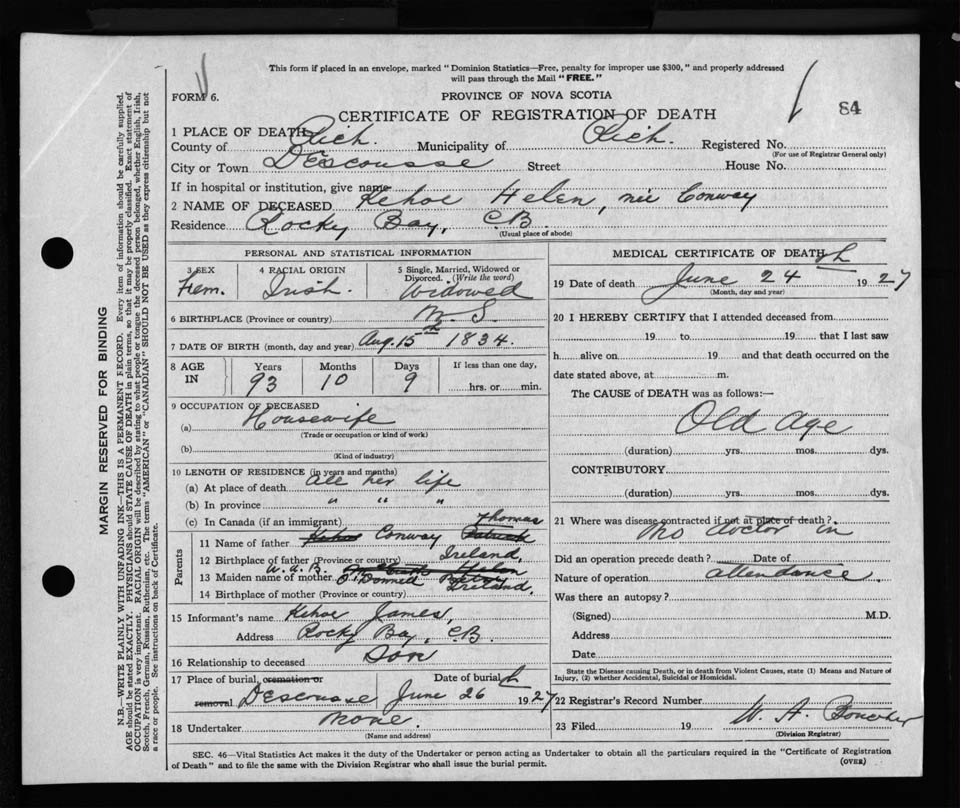 This form if placed in an envelope, marked "Dominion Statistics—Free, penalty for improper use $300," and properly addressed
will pass through the Mail "FREE."
FORM 6.
PROVINCE OF NOVA SCOTIA
84
CERTIFICATE OF REGISTRATION OF DEATH
1 PLACE OF DEATH
County of Rich. Municipality of Rich. Registered No.
(For use of Registrar General only)
City or Town Descousse Street House No.
If in hospital or institution, give name
2 NAME OF DECEASED Kehoe Helen, nee Conway
Residence Rocky Bay, C.B
(Usual place of abode)
PERSONAL AND STATISTICAL INFORMATION
3 SEX 4 RACIAL ORIGIN 5 Single, Married, Widowed or
Divorced. (Write the word)
Fem. Irish. Widowed
6 BIRTHPLACE (Province or country) N.S.
7 DATE OF BIRTH (month, day and year) Aug. 15th 1834.
8 AGE IN Years Months Days If less than one day,
93 10 9 hrs. or min.
9 OCCUPATION OF DECEASED
(a) Housewife
(Trade or occupation or kind of work)
(b)
(Kind of industry)
10 LENGTH OF RESIDENCE (in years and months)
(a) At place of death all her life
(b) In province " " "
(c) In Canada (if an immigrant)
Parents
11 Name of father Kehoe Conway Thomas Patrick
12 Birthplace of father (Province or country) Ireland,
W.A.B.
13 Maiden name of mother O'Donnell Betsy
14 Birthplace of mother (Province or country) Ireland,
15 Informant's name Kehoe James,
Address Rocky Bay, C.B.
16 Relationship to deceased Son
17 Place of burial, cremation or Date of burial
removal Descousse June 26th 1927
18 Undertaker None.
(Name and address)
MEDICAL CERTIFICATE OF DEATH
19 Date of death June 24th 1927
(Month, day and year)
20 I HEREBY CERTIFY that I attended deceased from
19 to 19 that I last saw
h alive on 19 and that death occurred on the
date stated above, at m.
The CAUSE of DEATH was as follows:—
Old Age
(duration) yrs. mos. dys.
CONTRIBUTORY
(duration) yrs. mos. dys.
21 Where was disease contracted if not at place of death?
No doctor in
Did an operation precede death? Date of
Nature of operation attendance.
Was there an autopsy?
(Signed) M.D.
Address
Date
State the Disease causing Death, or in death from Violent Causes, state (1) Means and Nature of
Injury, (2) whether Accidental, Suicidal or Homicidal.
22 Registrar's Record Number
23 Filed 19 W. A.
(Division Registrar)
SEC. 46—Vital Statistics Act makes it the duty of the Undertaker or person acting as Undertaker to obtain all the particulars required in the "Certificate of Registration
of Death" and to file the same with the Division Registrar who shall issue the burial permit.
(OVER)
MARGIN RESERVED FOR BINDING
N.B.—WRITE PLAINLY WITH UNFADING INK—THIS IS A PERMANENT RECORD. Every item of information should be carefully supplied.
AGE should be stated EXACTLY. PHYSICIANS should STATE CAUSE OF DEATH in plain terms, so that it may be properly classified. Exact statement of
OCCUPATION is very important. RACIAL ORIGIN will be described by stating to what people or tongue the deceased person belonged, whether English, Irish,
Scotch, French, German, Russian, Ruthenian, etc. The terms "AMERICAN" or "CANADIAN" SHOULD NOT BE USED as they express citizenship but not
a race or people. See instructions on back of Certificate.